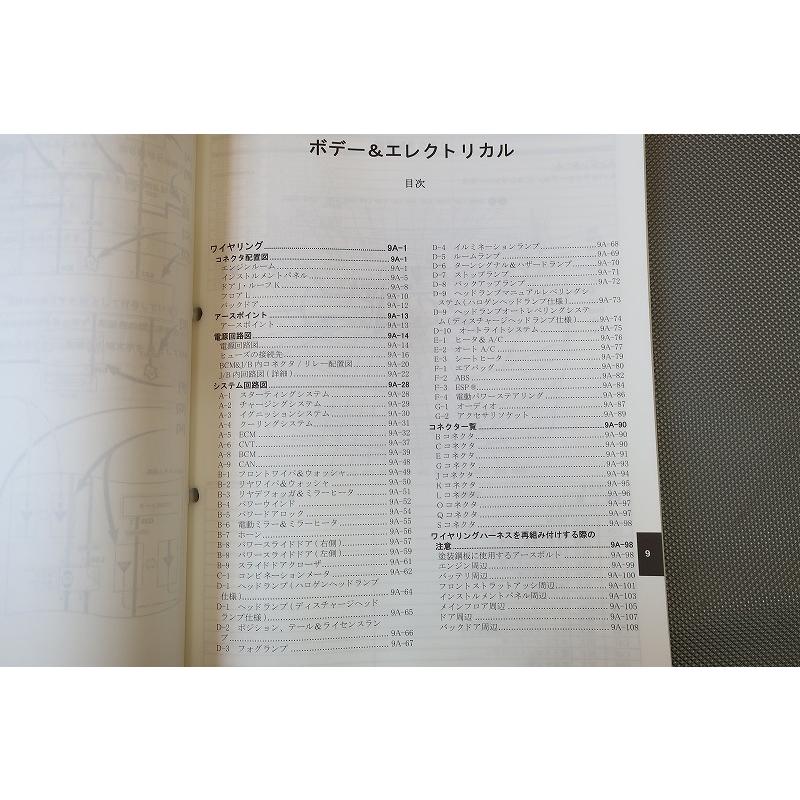 ボデー＆エレクトリカル
目次
ワイヤリング 9A-1
コネクタ配置図 9A-1
エンジンルーム 9A-1
インストルメントパネル 9A-5
ドアJ・ルーフK 9A-8
フロアL 9A-10
バックドア 9A-12
アースポイント 9A-13
アースポイント 9A-13
電源回路図 9A-14
電源回路図 9A-14
ヒューズの接続先 9A-16
BCM&J/B内コネクタ/リレー配置図 9A-20
J/B内回路図(詳細) 9A-22
システム回路図 9A-28
A-1 スターティングシステム 9A-28
A-2 チャージングシステム 9A-29
A-3 イグニッションシステム 9A-30
A-4 クーリングシステム 9A-31
A-5 ECM 9A-32
A-6 CVT 9A-37
A-8 BCM 9A-39
A-9 CAN 9A-48
B-1 フロントワイパ＆ウォッシャ 9A-49
B-2 リヤワイパ＆ウォッシャ 9A-50
B-3 リヤデフォッガ＆ミラーヒータ 9A-51
B-4 パワーウインド 9A-52
B-5 パワードアロック 9A-54
B-6 電動ミラー＆ミラーヒータ 9A-55
B-7 ホーン 9A-56
B-8 パワースライドドア(右側) 9A-57
B-8 パワースライドドア(左側) 9A-59
B-9 スライドドアクローザ 9A-61
C-1 コンビネーションメータ 9A-62
D-1 ヘッドランプ(ハロゲンヘッドランプ
仕様) 9A-64
D-1 ヘッドランプ(ディスチャージヘッド
ランプ仕様) 9A-65
D-2 ポジション、テール＆ライセンスラン
プ 9A-66
D-3 フォグランプ 9A-67
D-4 イルミネーションランプ 9A-68
D-5 ルームランプ 9A-69
D-6 ターンシグナル＆ハザードランプ 9A-70
D-7 ストップランプ 9A-71
D-8 バックアップランプ 9A-72
D-9 ヘッドランプマニュアルレベリングシ
ステム(ハロゲンヘッドランプ仕様) 9A-73
D-9 ヘッドランプオートレベリングシステ
ム(ディスチャージヘッドランプ仕様) 9A-74
D-10 オートライトシステム 9A-75
E-1 ヒータ＆A/C 9A-76
E-2 オートA/C 9A-77
E-3 シートヒータ 9A-79
F-1 エアバッグ 9A-80
F-2 ABS 9A-82
F-3 ESP® 9A-84
F-4 電動パワーステアリング 9A-86
G-1 オーディオ 9A-87
G-2 アクセサリソケット 9A-89
コネクター覧 9A-90
Bコネクタ 9A-90
Cコネクタ 9A-90
Eコネクタ 9A-91
Gコネクタ 9A-93
Jコネクタ 9A-94
Kコネクタ 9A-95
Lコネクタ 9A-96
Oコネクタ 9A-97
Qコネクタ 9A-97
Sコネクタ 9A-98
ワイヤリングハーネスを再組み付けする際の
注意 9A-98
塗装鋼板に使用するアースボルト 9A-98
エンジン周辺 9A-99
バッテリ周辺 9A-100
フロントストラットアッシ周辺 9A-101
インストルメントパネル周辺 9A-103
メインフロア周辺 9A-105
ドア周辺 9A-107
バックドア周辺 9A-108
9